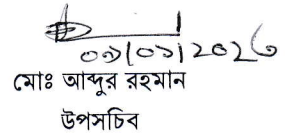 ০১/০১/২০২৬
মোঃ আব্দুর রহমান
উপসচিব